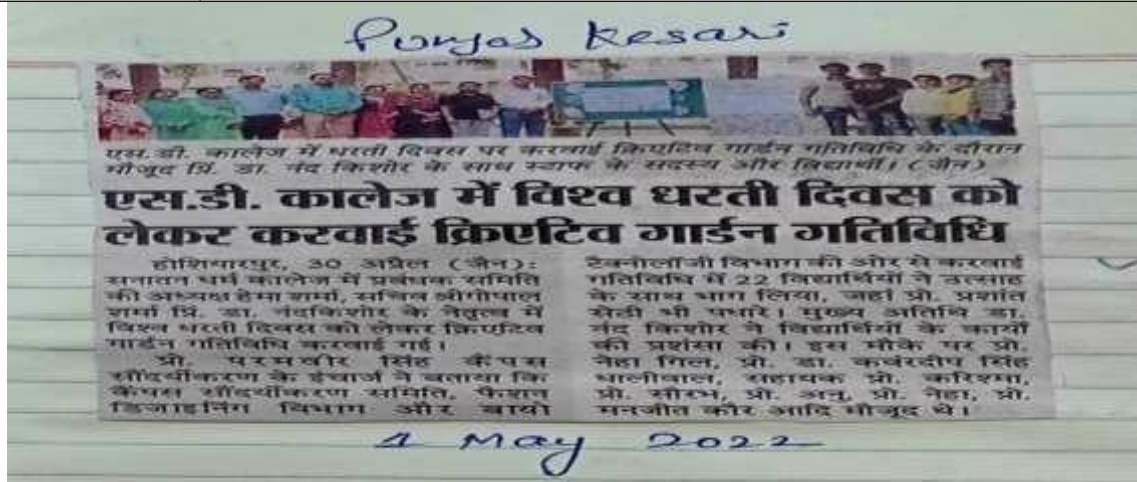 Punjab Kesari
एस.डी. कालेज में धरती दिवस पर करवाई क्रिएटिव गार्डन गतिविधि के दौरान
मौजूद प्रिं. डा. नंद किशोर के साथ स्टाफ के सदस्य और विद्यार्थी। (जैन)
एस.डी. कालेज में विश्व धरती दिवस को
लेकर करवाई क्रिएटिव गार्डन गतिविधि
होशियारपुर, 30 अप्रैल (जैन):
सनातन धर्म कालेज में प्रबंधक समिति
की अध्यक्ष हेमा शर्मा, सचिव श्रीगोपाल
शर्मा प्रिं. डा. नंदकिशोर के नेतृत्व में
विश्व धरती दिवस को लेकर क्रिएटिव
गार्डन गतिविधि करवाई गई।
प्रो. परमवीर सिंह कैंपस
सौंदर्यीकरण के इंचार्ज ने बताया कि
कैंपस सौंदर्यीकरण समिति, फैशन
डिजाइनिंग विभाग और बायो
टैक्नोलॉजी विभाग की ओर से करवाई
गतिविधि में 22 विद्यार्थियों ने उत्साह
के साथ भाग लिया, जहां प्रो. प्रशांत
सेठी भी पधारे। मुख्य अतिथि डा.
नंद किशोर ने विद्यार्थियों के कार्यों
की प्रशंसा की। इस मौके पर प्रो.
नेहा गिल, प्रो. डा. कवंरदीप सिंह
धालीवाल, सहायक प्रो. करिश्मा,
प्रो. सौरभ, प्रो. अनु, प्रो. नेहा, प्रो.
मनजीत कौर आदि मौजूद थे।
1 May 2022